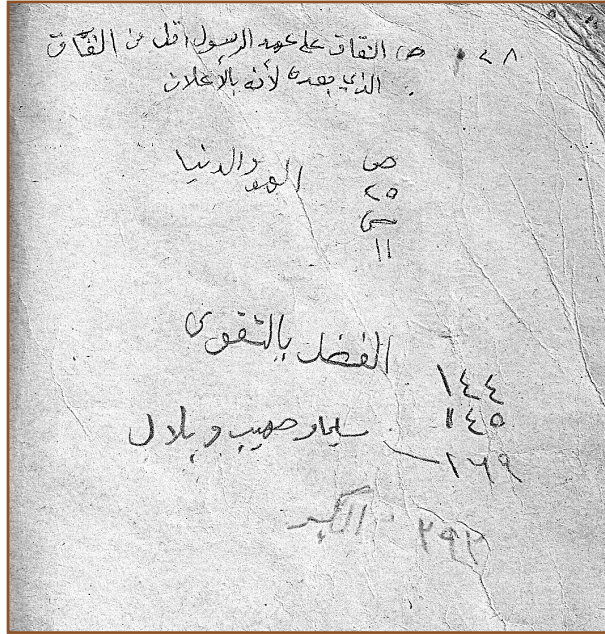 ٢٨ ص النفاق على عهد الرسول أقل من النفاق
الذي بعده لأنه بالأعلان
ص
٢٥ الهوى والدنيا
س
١١
الفضل بالتقوى
١٤٤
١٤٥
١٦٩ سلمان وصهيب وبلال
٢٩٢ الكبر